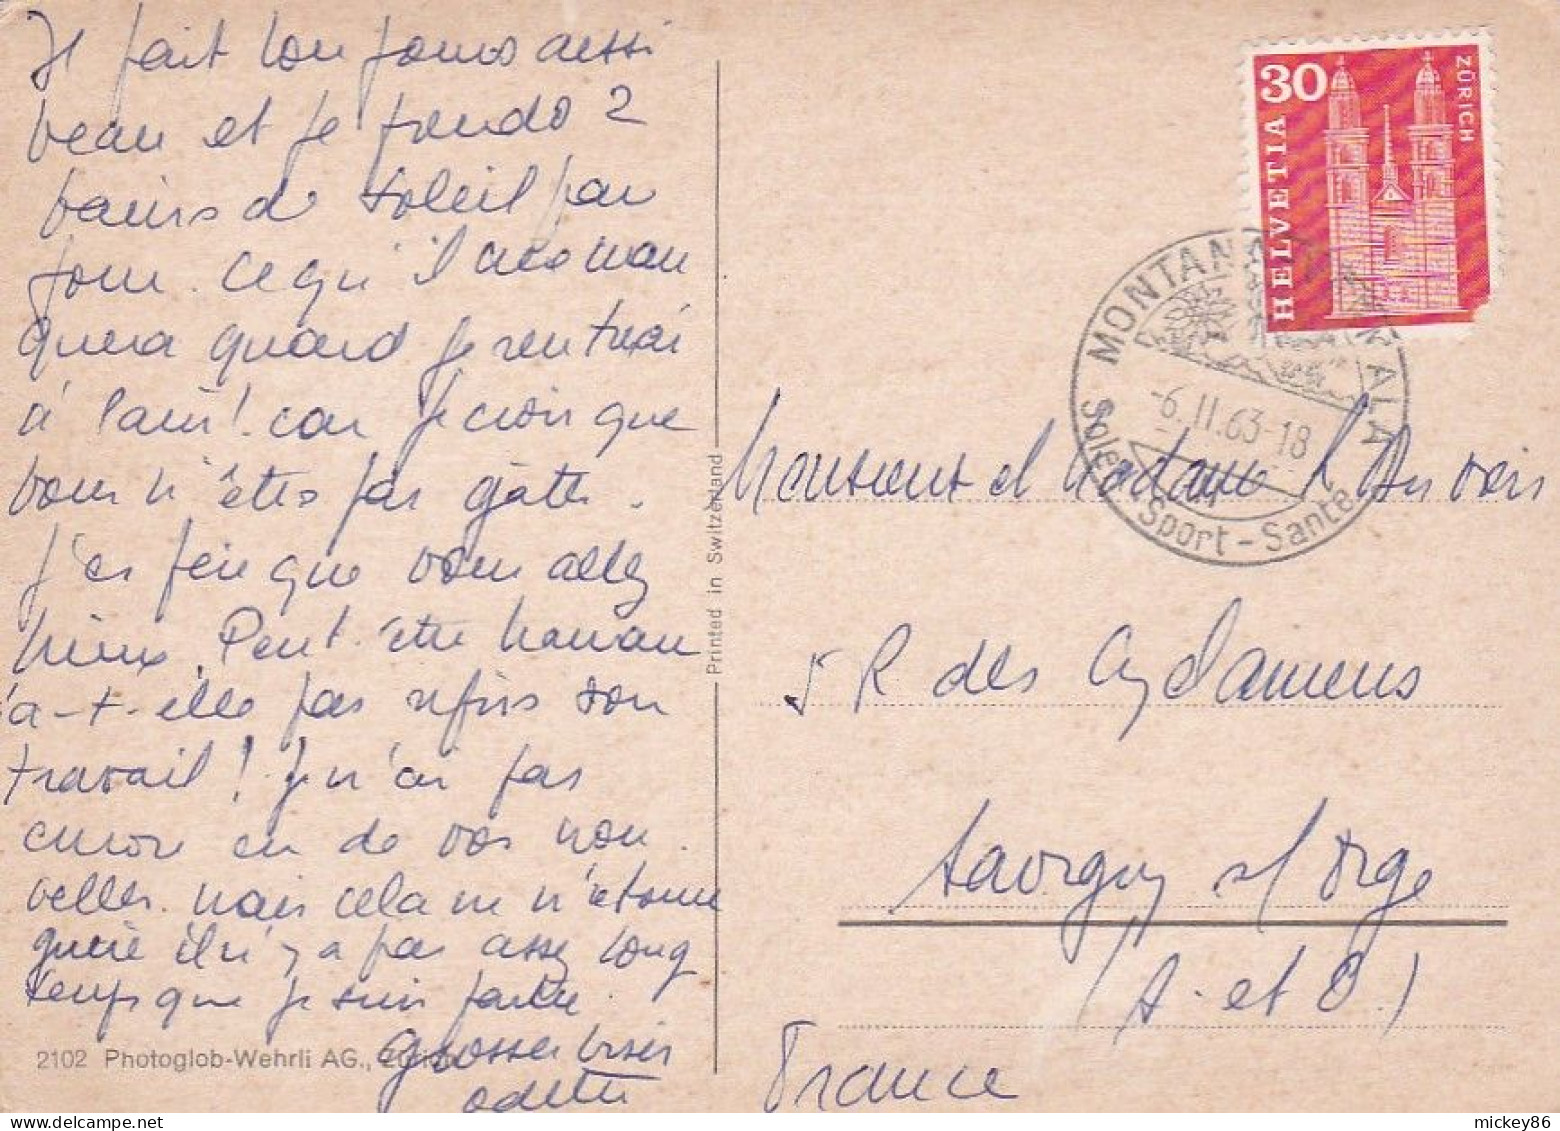 Il fait toujours aussi
beau et je prends 2
bains de soleil par
jour. Ce qu'il me man
quera quand je rentrai
à Paris! car je crois que
vous n'êtes pas gâtés.
J'espère que vous allez
mieux. Peut-être maman
a-t-elle pas repris son
travail! Je n'ai pas
encore eu de vos nou.
velles. mais cela ne m'étonne
guère il n'y a pas assez long
temps que je suis partie.
Grosses bises
Odette
2102 Photoglob-Wehrli AG., Zürich
Printed in Switzerland
30
HELVETIA
ZÜRICH
MONTANA
-6.II.63-18
Soleil-Sport-Santé
Monsieur et Madame
5 R des Cyclamens
Savigny s/ Orge
(S. et O.)
France
mickey86